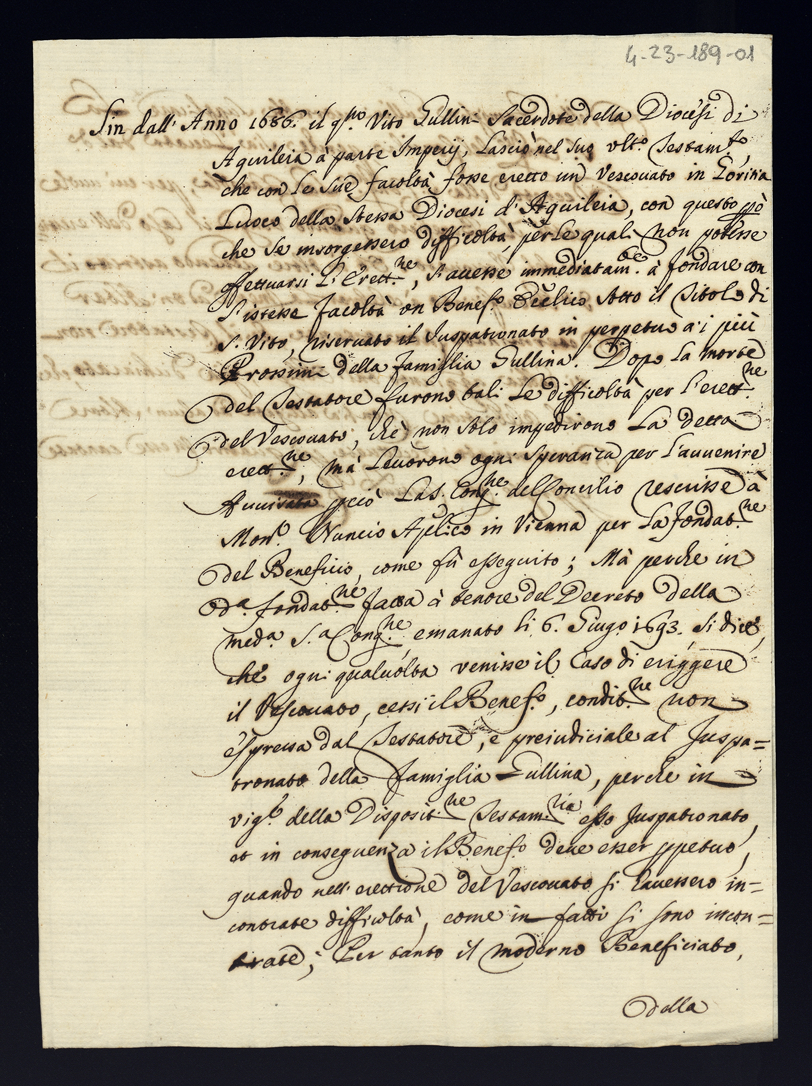 4-23-189-01
Sin dall' Anno 1686. il q.m Vito Gullini Sacerdote della Diocesi di
Aquileia à parte Imperij, Lasciò nel suo vlt.o Testam.to
che con Le Sue facoltà fosse eretto un Vescouato in Goritia
Luoco della Stessa Diocesi d'Aquileia, con questo però
che se insorgessero difficoltà, per Le quali non potesse
effettuarsi L'Erett.ne, S'auesse immediatam.e à fondare con
L'istesse facoltà un Benef.o Ecclico sotto il Titolo di
S. Vito, riseruato il Juspatronato in perpetuo a'i più
Prossimi della famiglia Gullina. Dopo La morte
del Testatore furono tali Le difficoltà per l'erett.ne
del Vescouato, chè non solo impedirono La detta
erett.ne, mà Leuorono ogni Speranza per L'auuenire
però La S. Cong.ne del Concilio rescrisse à
Mons.r Nuncio Aplico in Vienna per La fondat.ne
del Beneficio, come fù esseguito; Mà perche in
d.a fondat.ne fatta à tenore del Decreto della
med.a S.a Cong.ne emanato li 6. Giug.o 1693. si dice,
chè ogni qualuolta venisse il Caso di eriggere
il Vescouato, cessi il Benef.o, condit.ne non
espressa dal Testatore, e preiudiciale al Juspa=
tronato della famiglia Gullina, perche in
vig.e della Disposit.ne Testam.ria esso Juspatronato,
et in conseguenza il Benef.o deue esser ppetuo,
quando nell'erettione del Vescouato si hauessero in=
contrate difficoltà, come in fatti si sono incon=
trate; Per tanto il moderno Beneficiato,
della